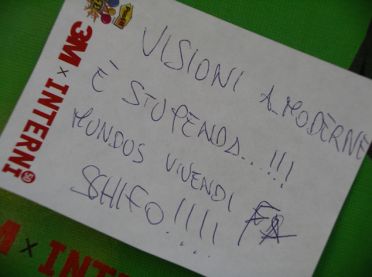 3M x INTERNI
VISIONI A MODERNE
È STUPENDA...!!!
MUNDOS VIVENDI FA
SCHIFO!!!!
x INTE